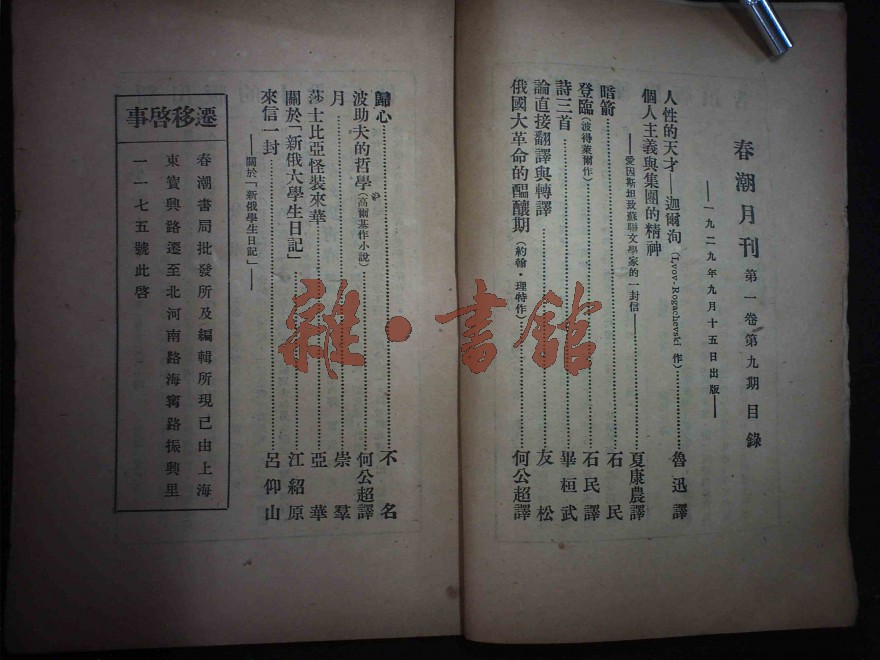 春潮月刊 第一卷第九期目錄
——一九二九年九月十五日出版——
人性的天才——迦爾洵（Lvov-Rogachevski 作）………魯迅譯
個人主義與集團的精神
——愛因斯坦致蘇聯文學家的一封信——………夏康農譯
暗箭………石民
登臨（波得萊爾作）………石民譯
詩三首………畢桓武
論直接翻譯與轉譯………友松
俄國大革命的醞釀期（約翰・理特作）………何公超譯
歸心………不名
波助夫的哲學（高爾基作小說）………何公超譯
月………崇羣
莎士比亞怪裝來華………亞華
關於「新俄大學生日記」………江紹原
來信一封………呂仰山
——關於「新俄學生日記」——
遷移啓事
春潮書局批發所及編輯所現已由上海
東寶興路遷至北河南路海寗路振興里
一一七五號此啓
雜・書館